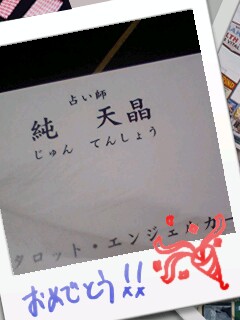 占い師
純 天晶
じゅん てんしょう
タロット・エンジェルカー
おめでとう!!